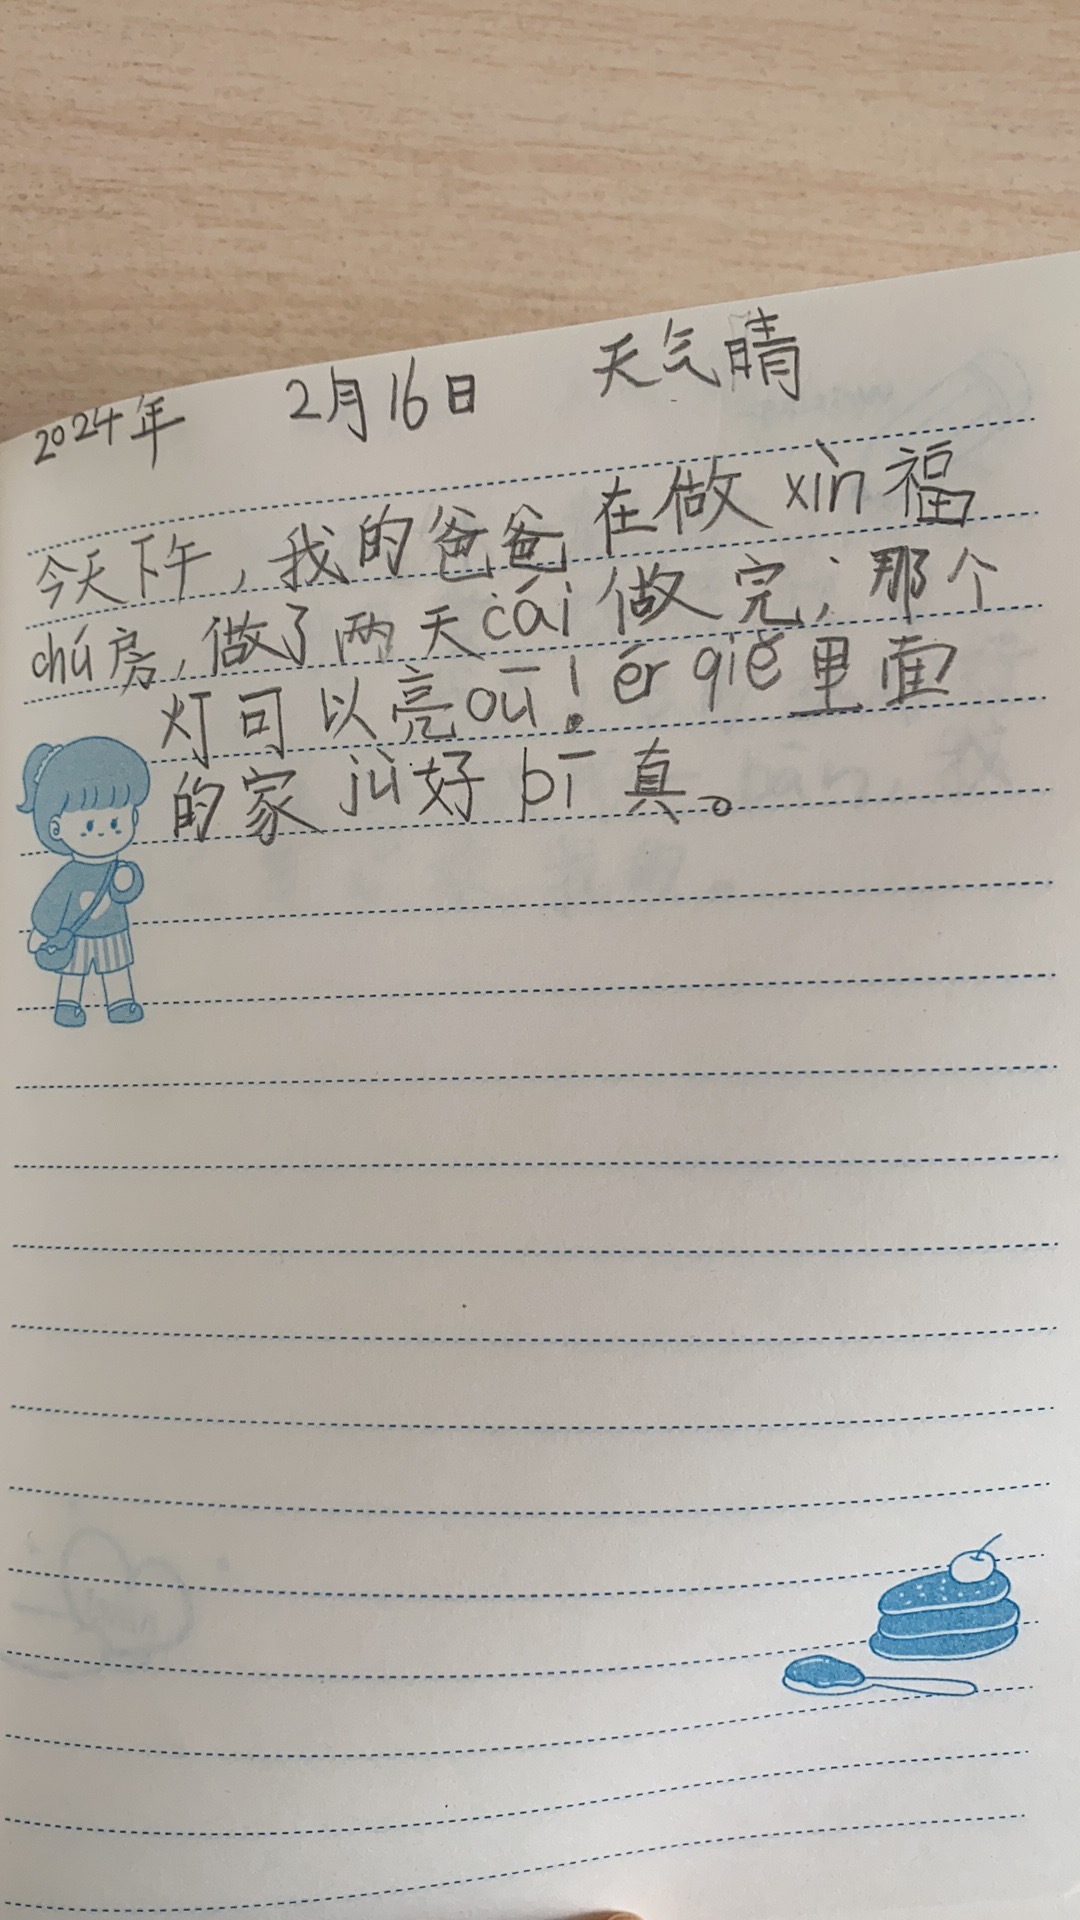 2024年 2月16日 天气晴
今天下午，我的爸爸在做xìn福
chú房，做了两天cái做完；那个
灯可以亮oū！ér qiě里面
的家jù好bī真。